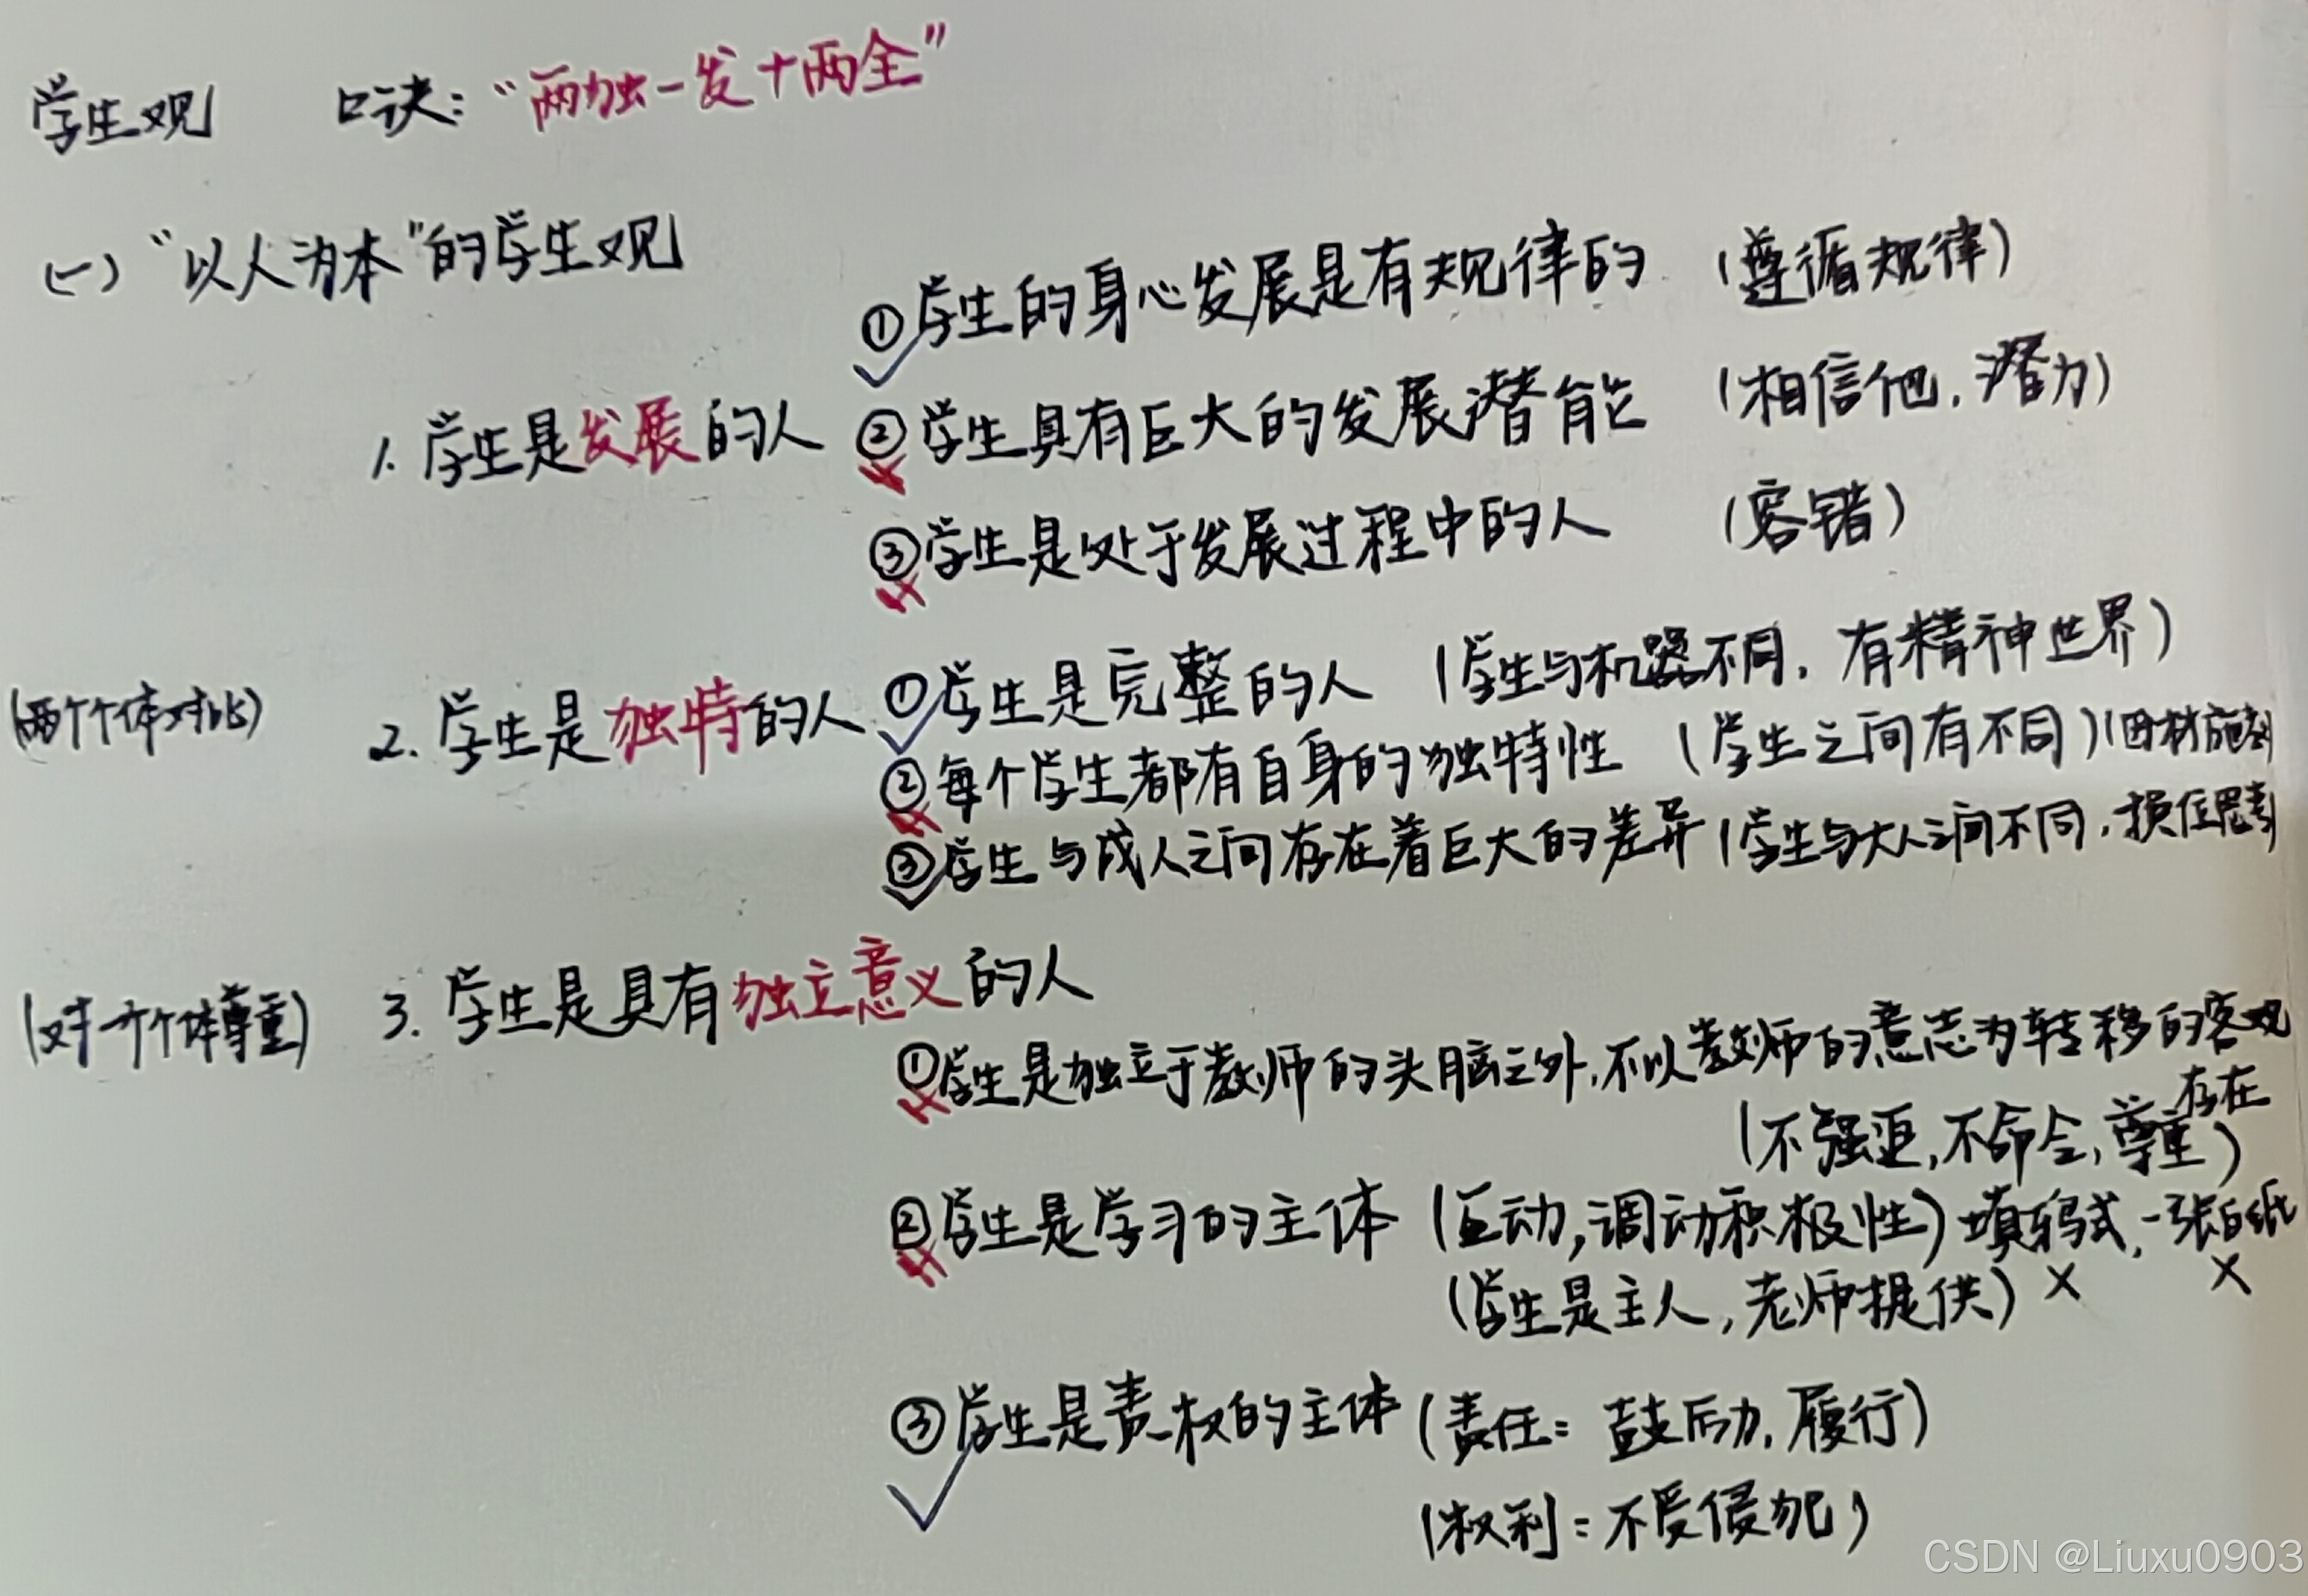 学生观 口诀：“两独一发+两全”
(一)“以人为本”的学生观
1. 学生是发展的人
①学生的身心发展是有规律的 (遵循规律)
②学生具有巨大的发展潜能 (相信他，潜力)
③学生是处于发展过程中的人 (容错)
(两个个体对比) 2. 学生是独特的人
①学生是完整的人 (学生与机器不同，有精神世界)
②每个学生都有自身的独特性 (学生之间有不同)(因材施教
③学生与成人之间存在着巨大的差异 (学生与大人之间不同，换位思考
(对一个个体尊重) 3. 学生是具有独立意义的人
①学生是独立于教师的头脑之外，不以教师的意志为转移的客观
存在
(不强迫，不命令，尊重)
②学生是学习的主体 (互动，调动积极性) 填鸭式，一张白纸
(学生是主人，老师提供) × ×
③学生是责权的主体 (责任：鼓励，履行)
(权利：不受侵犯)
CSDN @Liuxu0903